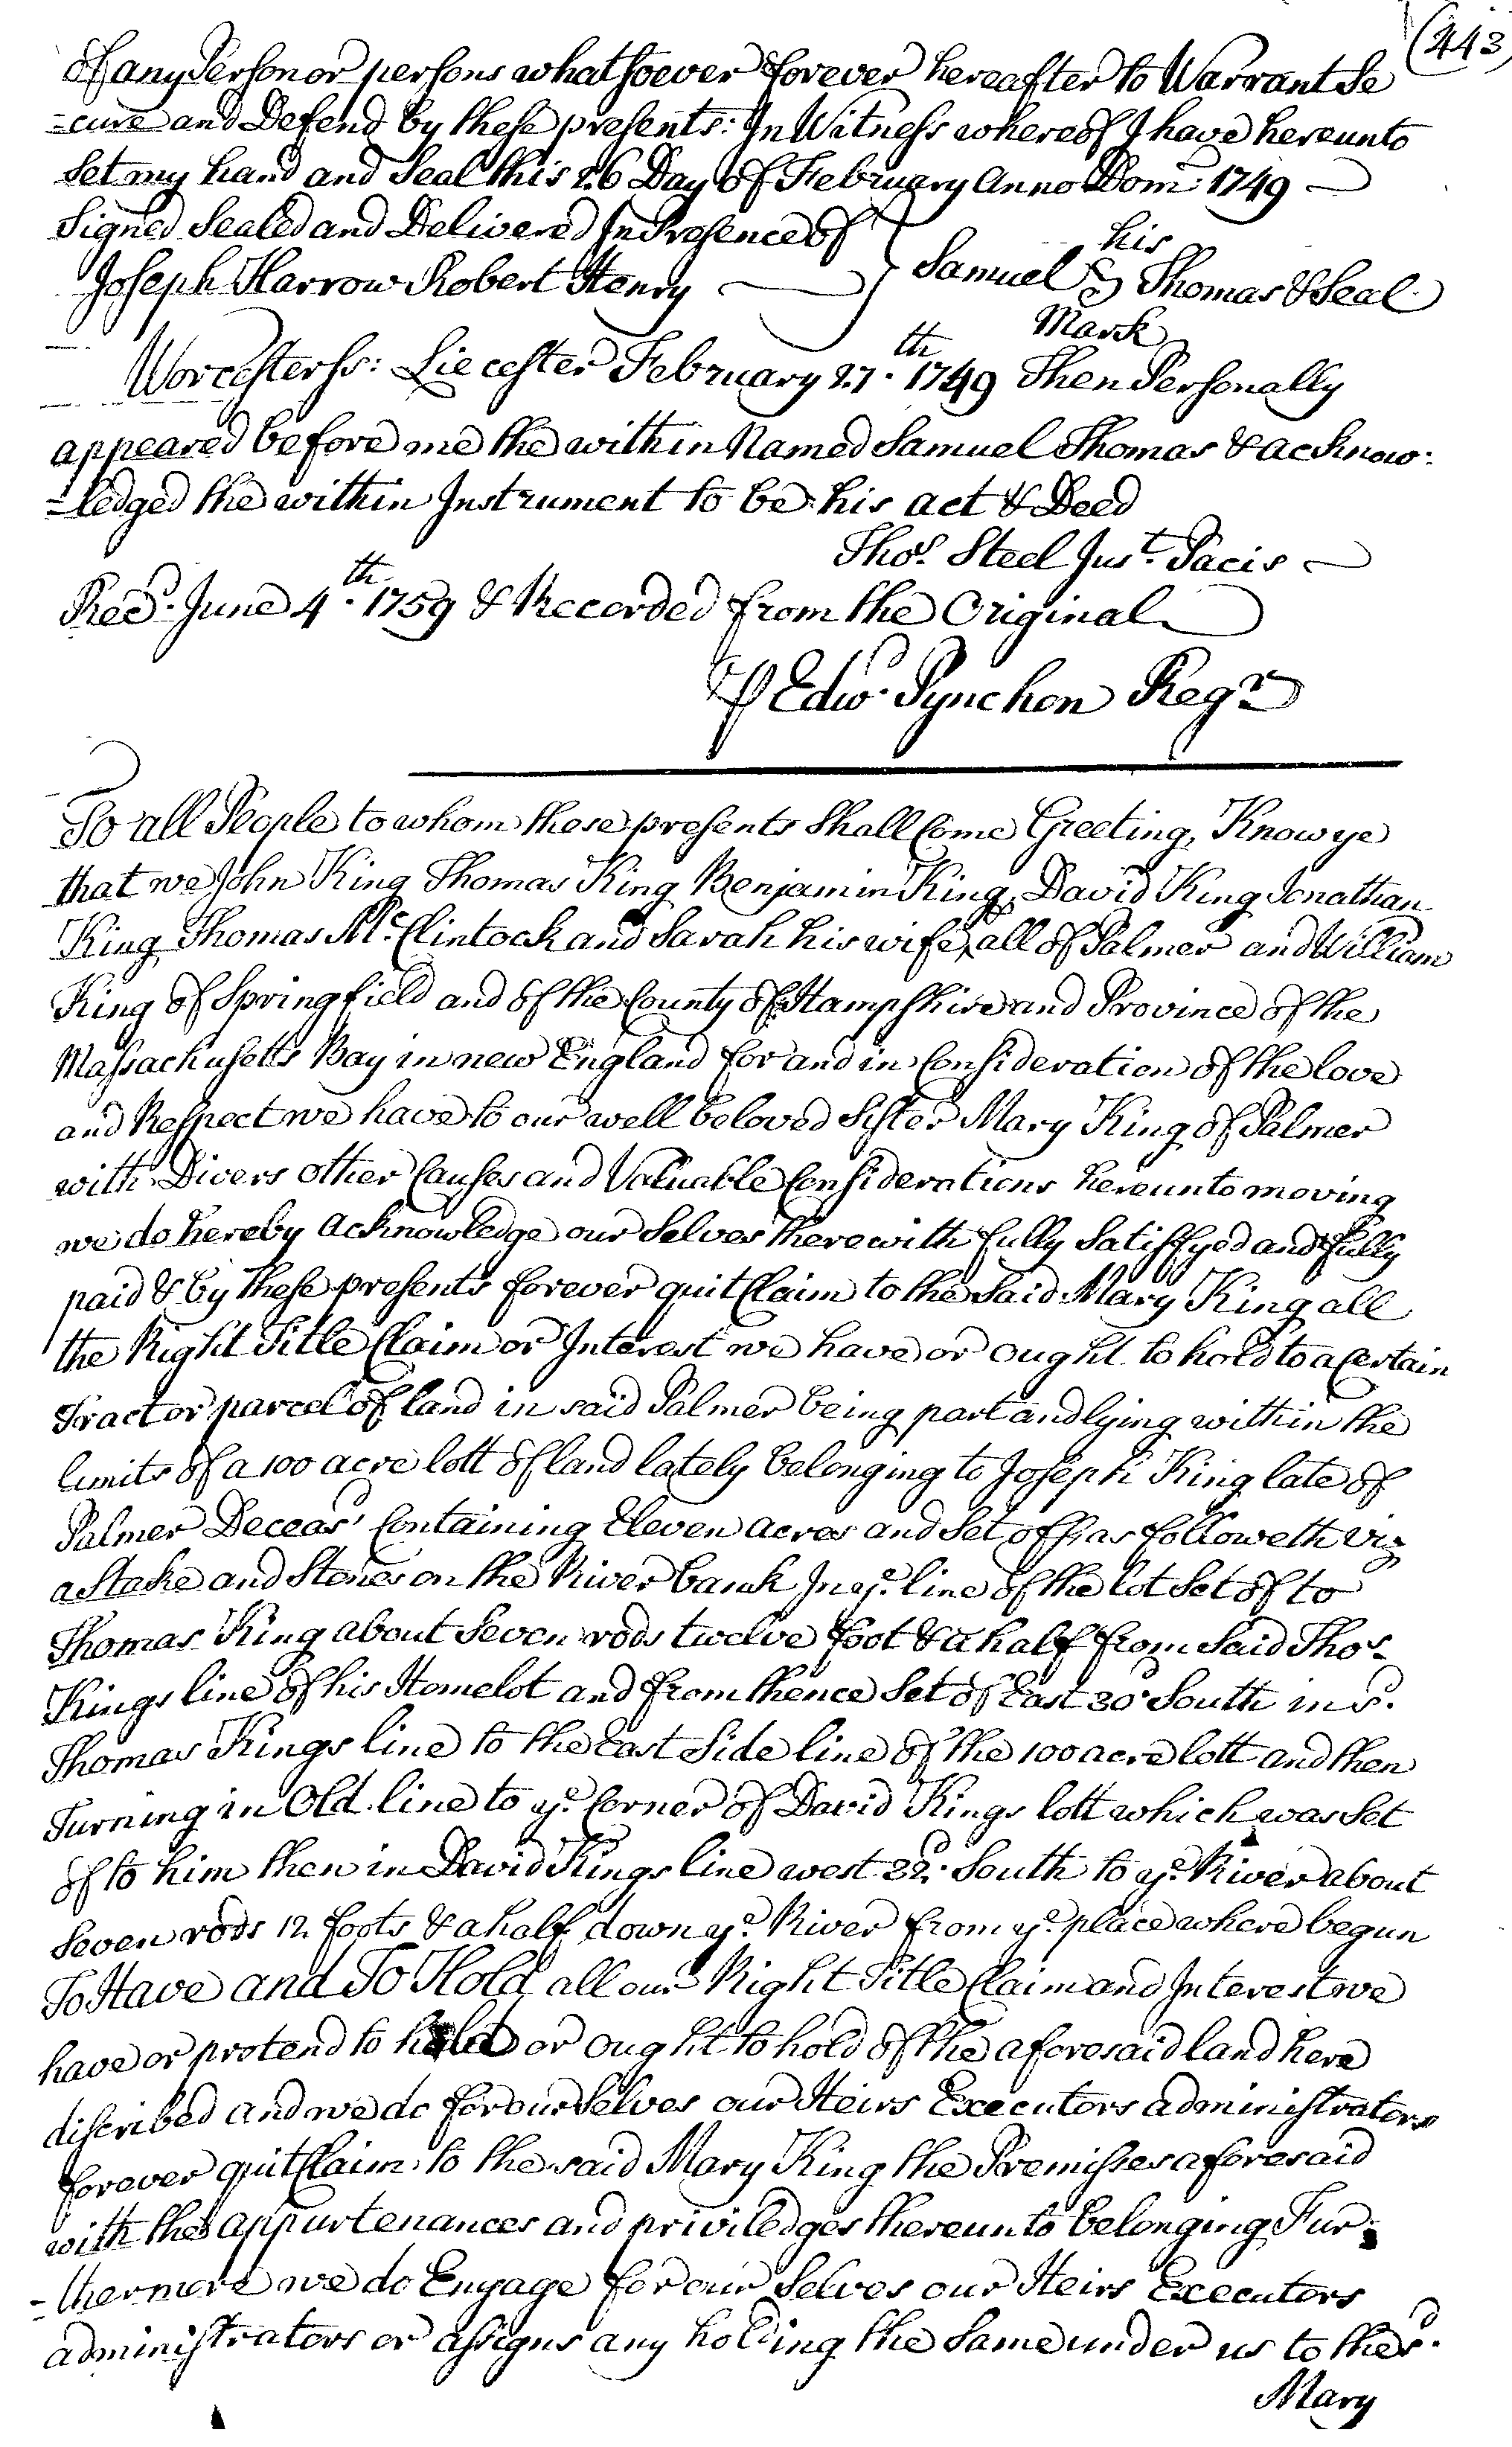 (443
of any Person or persons whatsoever forever hereafter to Warrant Se
=cure and Defend by these presents: In Witness whereof I have hereunto
Set my hand and Seal this 26 Day of February Anno Dom: 1749
Signed Sealed and Delivered In Presence of
his
Joseph Harrow Robert Henry } Samuel S Thomas & Seal
Mark
Worcester ss: Liecester February 27th. 1749 Then Personally
appeared before me the within Named Samuel Thomas & acknow:
=ledged the within Instrument to be his act & Deed
Thos. Steel Just. Pacis
Recd. June 4th. 1759 & Recorded from the Original
P Edwd. Pynchon Regr
To all People to whom these presents Shall Come Greeting, Know ye
that we John King Thomas King Benjamin King, David King Jonathan
King Thomas Mc.Clintock and Sarah his wife, all of Palmer and William
King of Springfield and of the County of Hampshire and Province of the
Massachusetts Bay in new England for and in Consideration of the love
and Respect we have to our well beloved Sister Mary King of Palmer
with Divers other Causes and Valuable Considerations hereunto moving
we do hereby acknowledge our Selves therewith fully Satisfyed and fully
paid & by these presents forever quit Claim to the Said Mary King all
the Right Title Claim or Interest we have or ought to hold to a Certain
Tract or parcel of land in said Palmer being part and lying within the
limits of a 100 acre lott of land lately belonging to Joseph King late of
Palmer Deceasd Containing Eleven acres and Set off as followeth viz
a Stake and Stones on the River bank In ye. line of the lot Set of to
Thomas King about Seven rods twelve foot & a half from Said Thos.
Kings line of his Homelot and from thence Set of East 30d South in sd.
Thomas Kings line to the East Side line of the 100 acre lott and then
Turning in Old line to ye. Corner of David Kings lott which was Set
of to him then in David Kings line west 32d. South to ye. River about
Seven rods 12 foots & a half down ye. River from ye. place where begun
To Have and To Hold all our Right Title Claim and Interest we
have or pretend to hold or ought to hold of the aforesaid land here
discribed and we do for our Selves our Heirs Executors administrators
forever quit Claim to the said Mary King the Premisses aforesaid
with the appurtenances and priviledges thereunto belonging Fur=
=thermore we do Engage for our Selves our Heirs Executors
administrators or assigns any holding the Same under us to the sd.
Mary